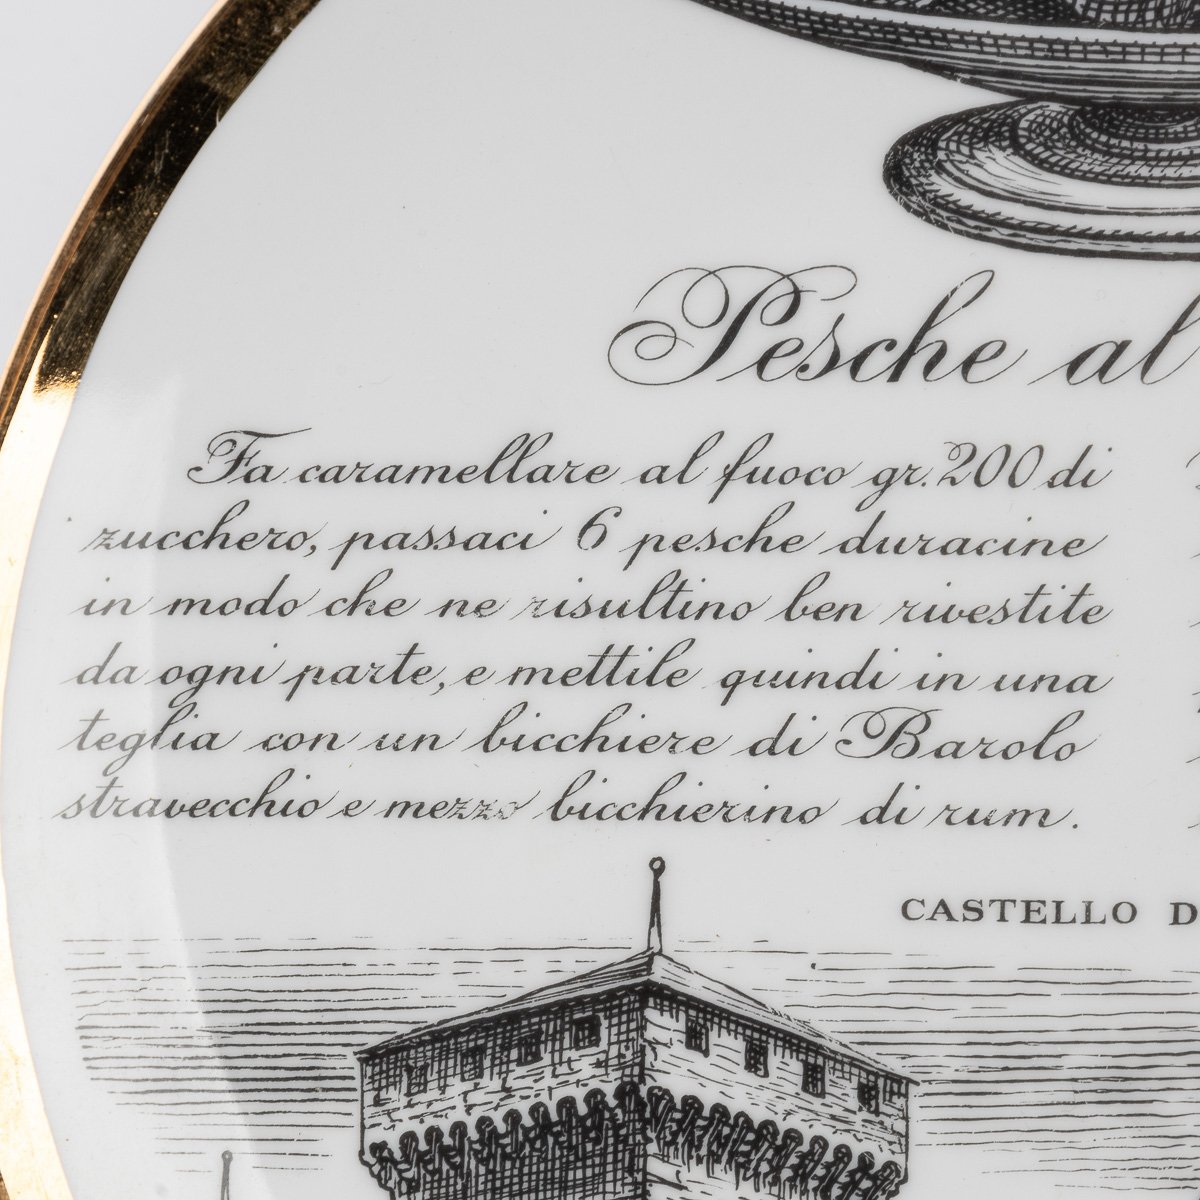 Pesche al
Fa caramellare al fuoco gr. 200 di
zucchero, passaci 6 pesche duracine
in modo che ne risultino ben rivestite
da ogni parte, e mettile quindi in una
teglia con un bicchiere di Barolo
stravecchio e mezzo bicchierino di rum.
CASTELLO D